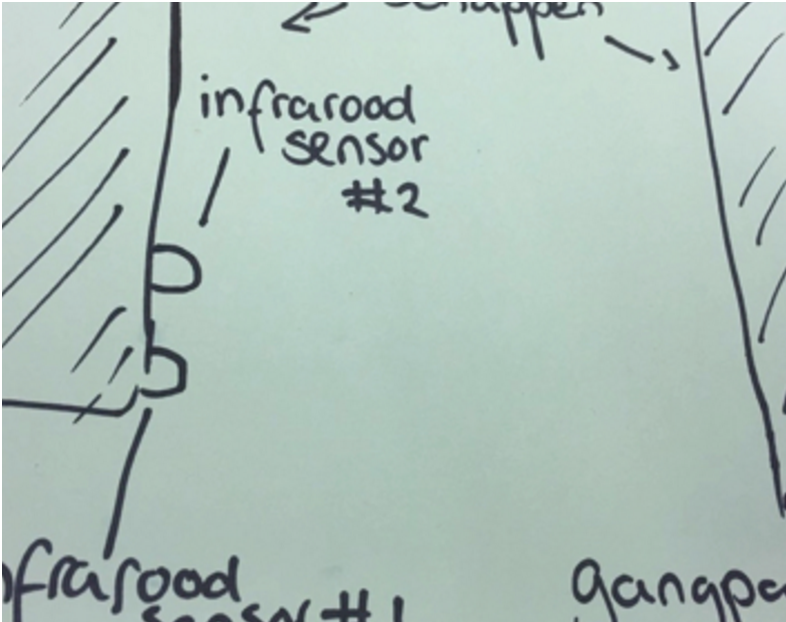 schappen
infrarood
sensor
#2
nfrarood
sensor #1
gangpa